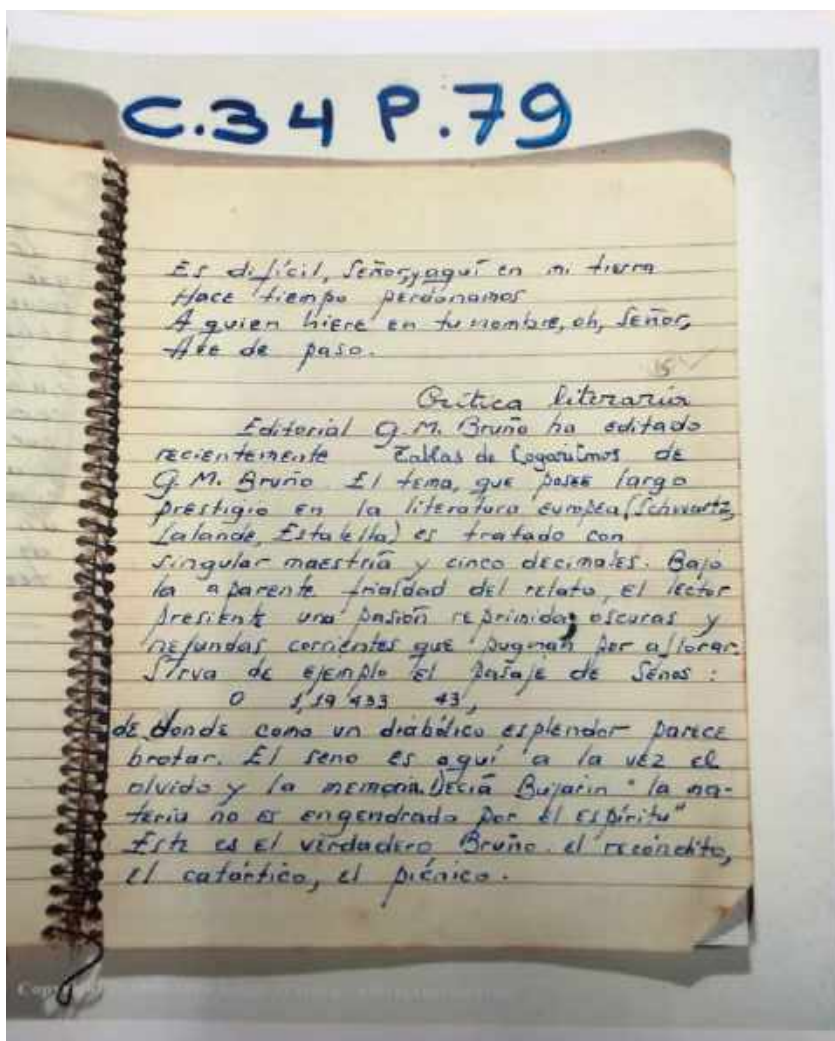 C.34 P.79
Es difícil, Señor, y aquí en mi tierra
Hace tiempo perdonamos
A quien hiere en tu nombre, oh, Señor,
Ave de paso.
Crítica literaria
Editorial G.M. Bruño ha editado
recientemente Tablas de Logaritmos de
G.M. Bruño. El tema, que posee largo
prestigio en la literatura europea (Schwartz,
Lalande, Estalella) es tratado con
singular maestría y cinco decimales. Bajo
la aparente frialdad del relato, el lector
presiente una pasión reprimida; oscuras y
nefundas corrientes que pugnan por aflorar.
Sirva de ejemplo el pasaje de Senos:
0 1,19 433 43,
de donde como un diabólico esplendor parece
brotar. El seno es aquí a la vez el
olvido y la memoria. Decía Bujarin "la ma-
teria no es engendrada por el espíritu"
Este es el verdadero Bruño. el recóndito,
el catártico, el pícnico.